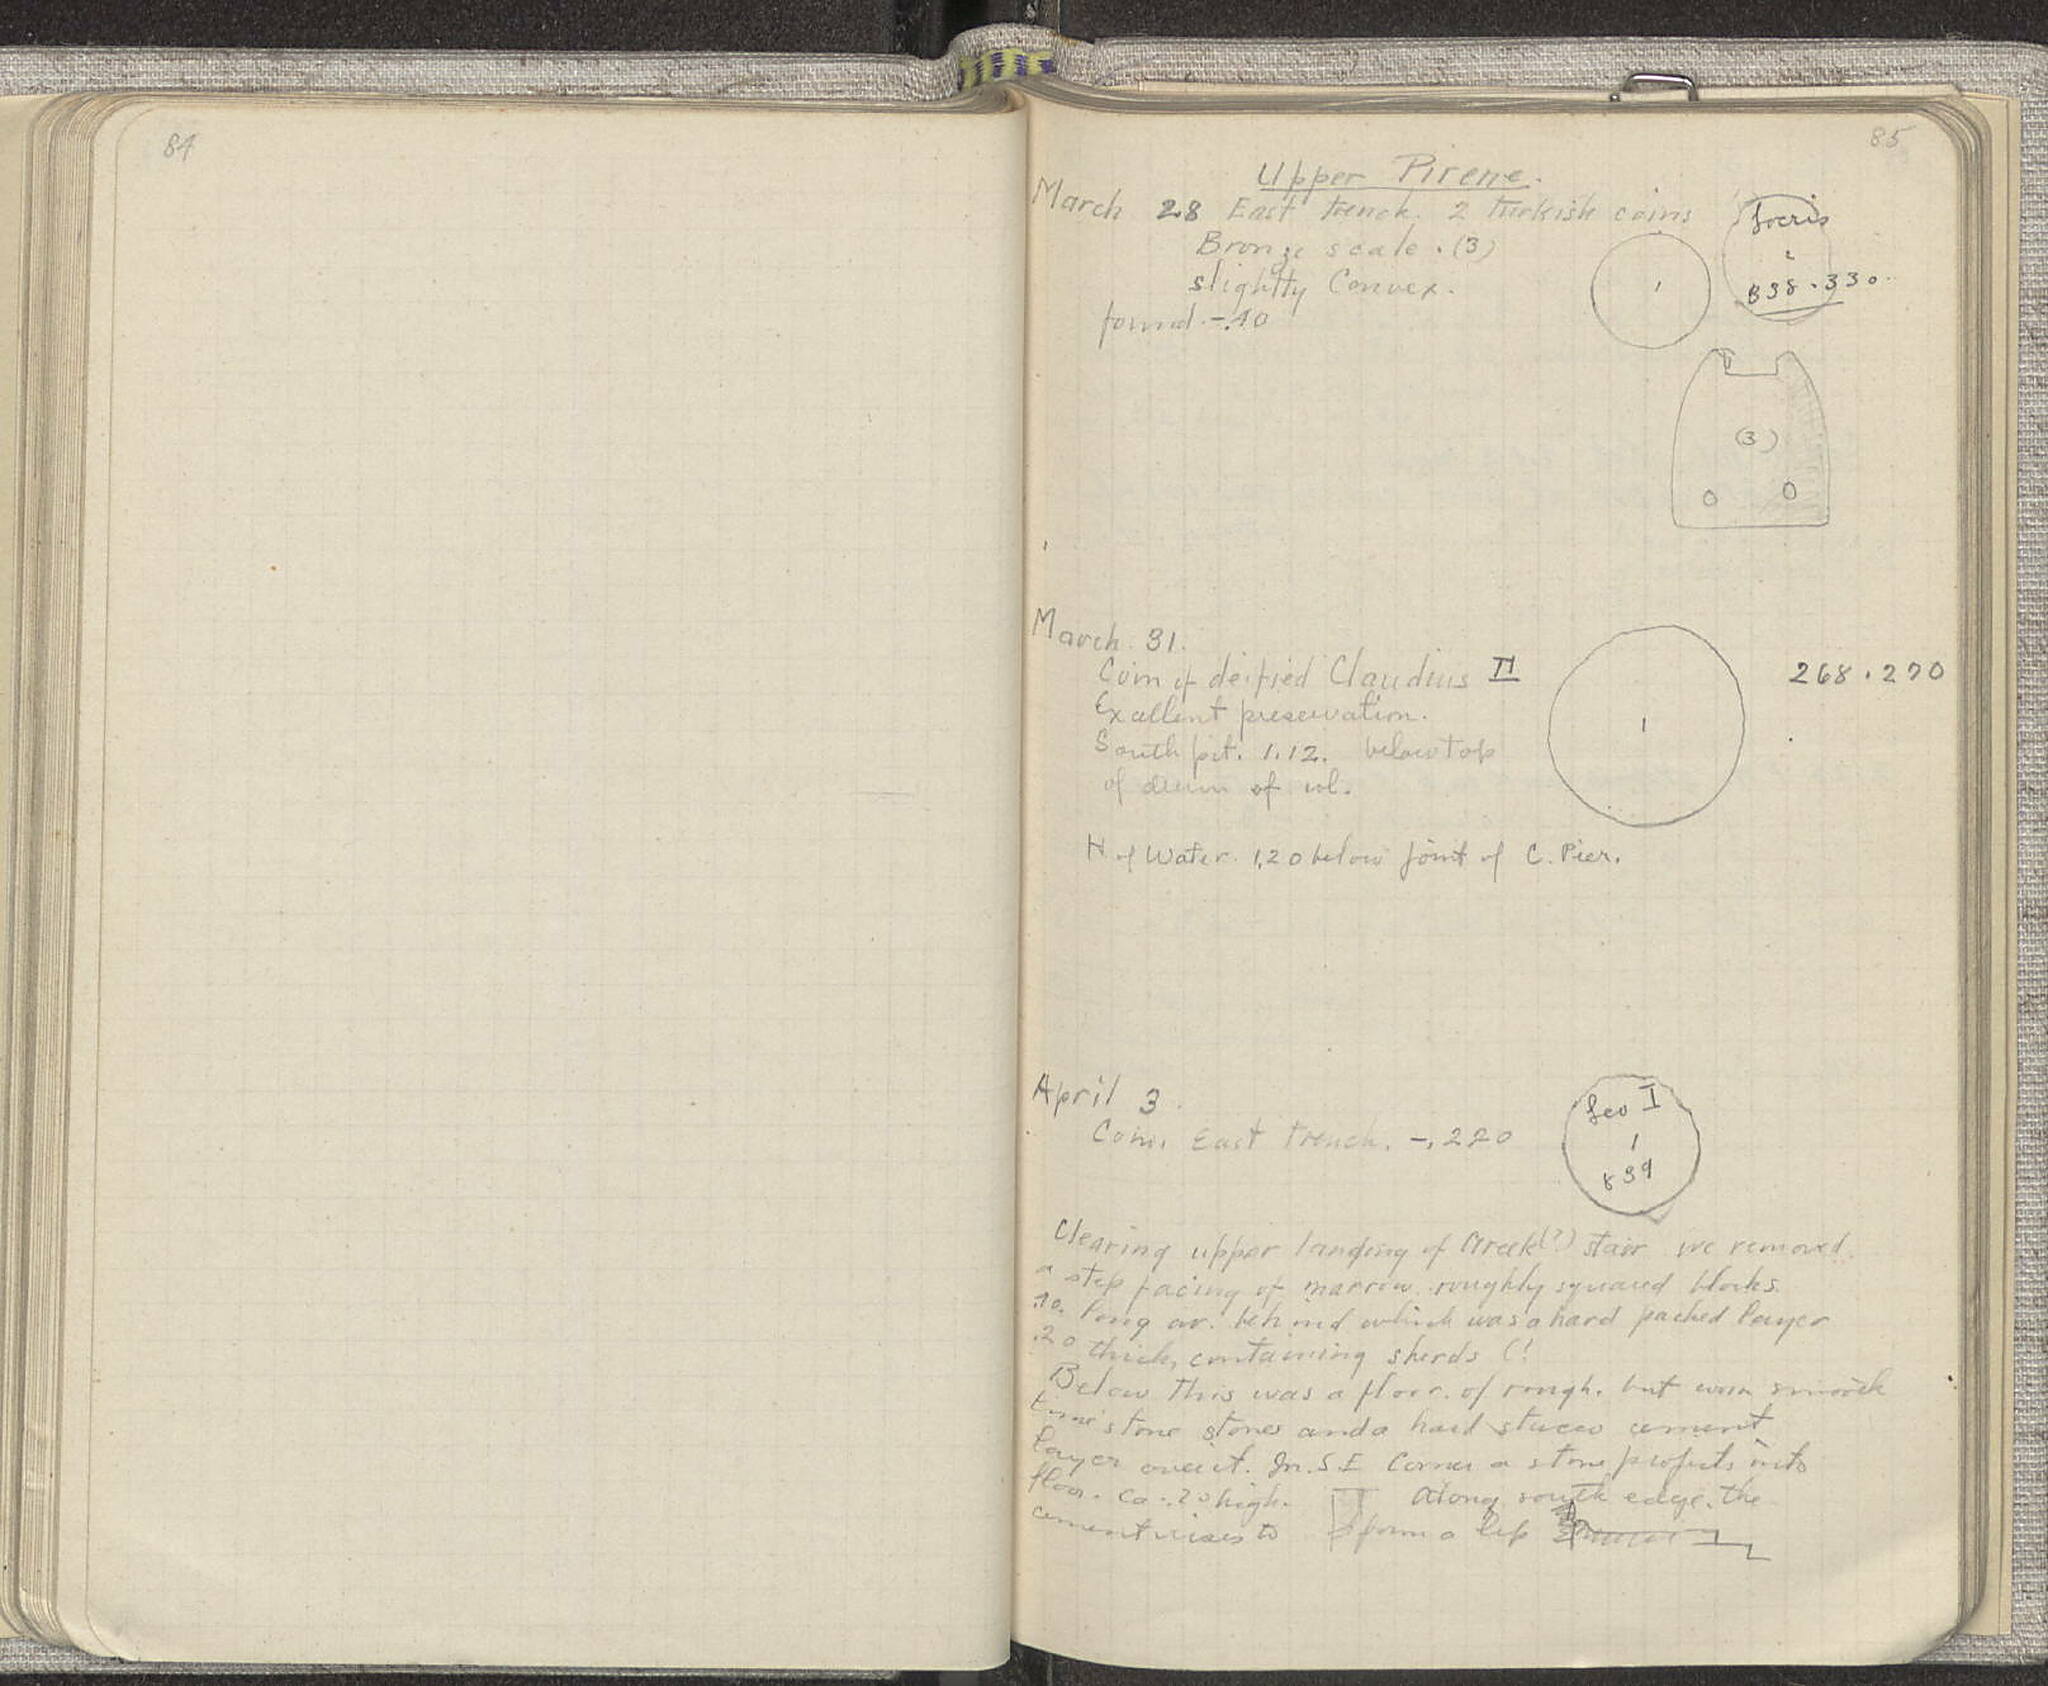 84
85
Upper Pirene.
March 28 East trench. 2 Turkish coins
Locris
Bronze scale. (3)
1
2
slightly Convex.
B38-330
found -.40
(3)
March. 31.
Coin of deified Claudius II
268-270
Excellent preservation.
1
South pit. 1.12. below top
of drum of col.
H of Water. 1,20 below joint of C. Pier.
April 3.
Leo I
Coin. East trench. -.220
1
839
Clearing upper landing of Greek (?) stair we removed
a step facing of narrow roughly squared blocks
.40. long av. behind which was a hard packed layer
.20 thick, containing sherds (!
Below this was a floor of rough. but worn smooth
stone stones and a hard stucco cement
layer over it. In. S E Corner a stone projects into
floor. ca. .20 high. Along south edge. the
cement rises to form a lip